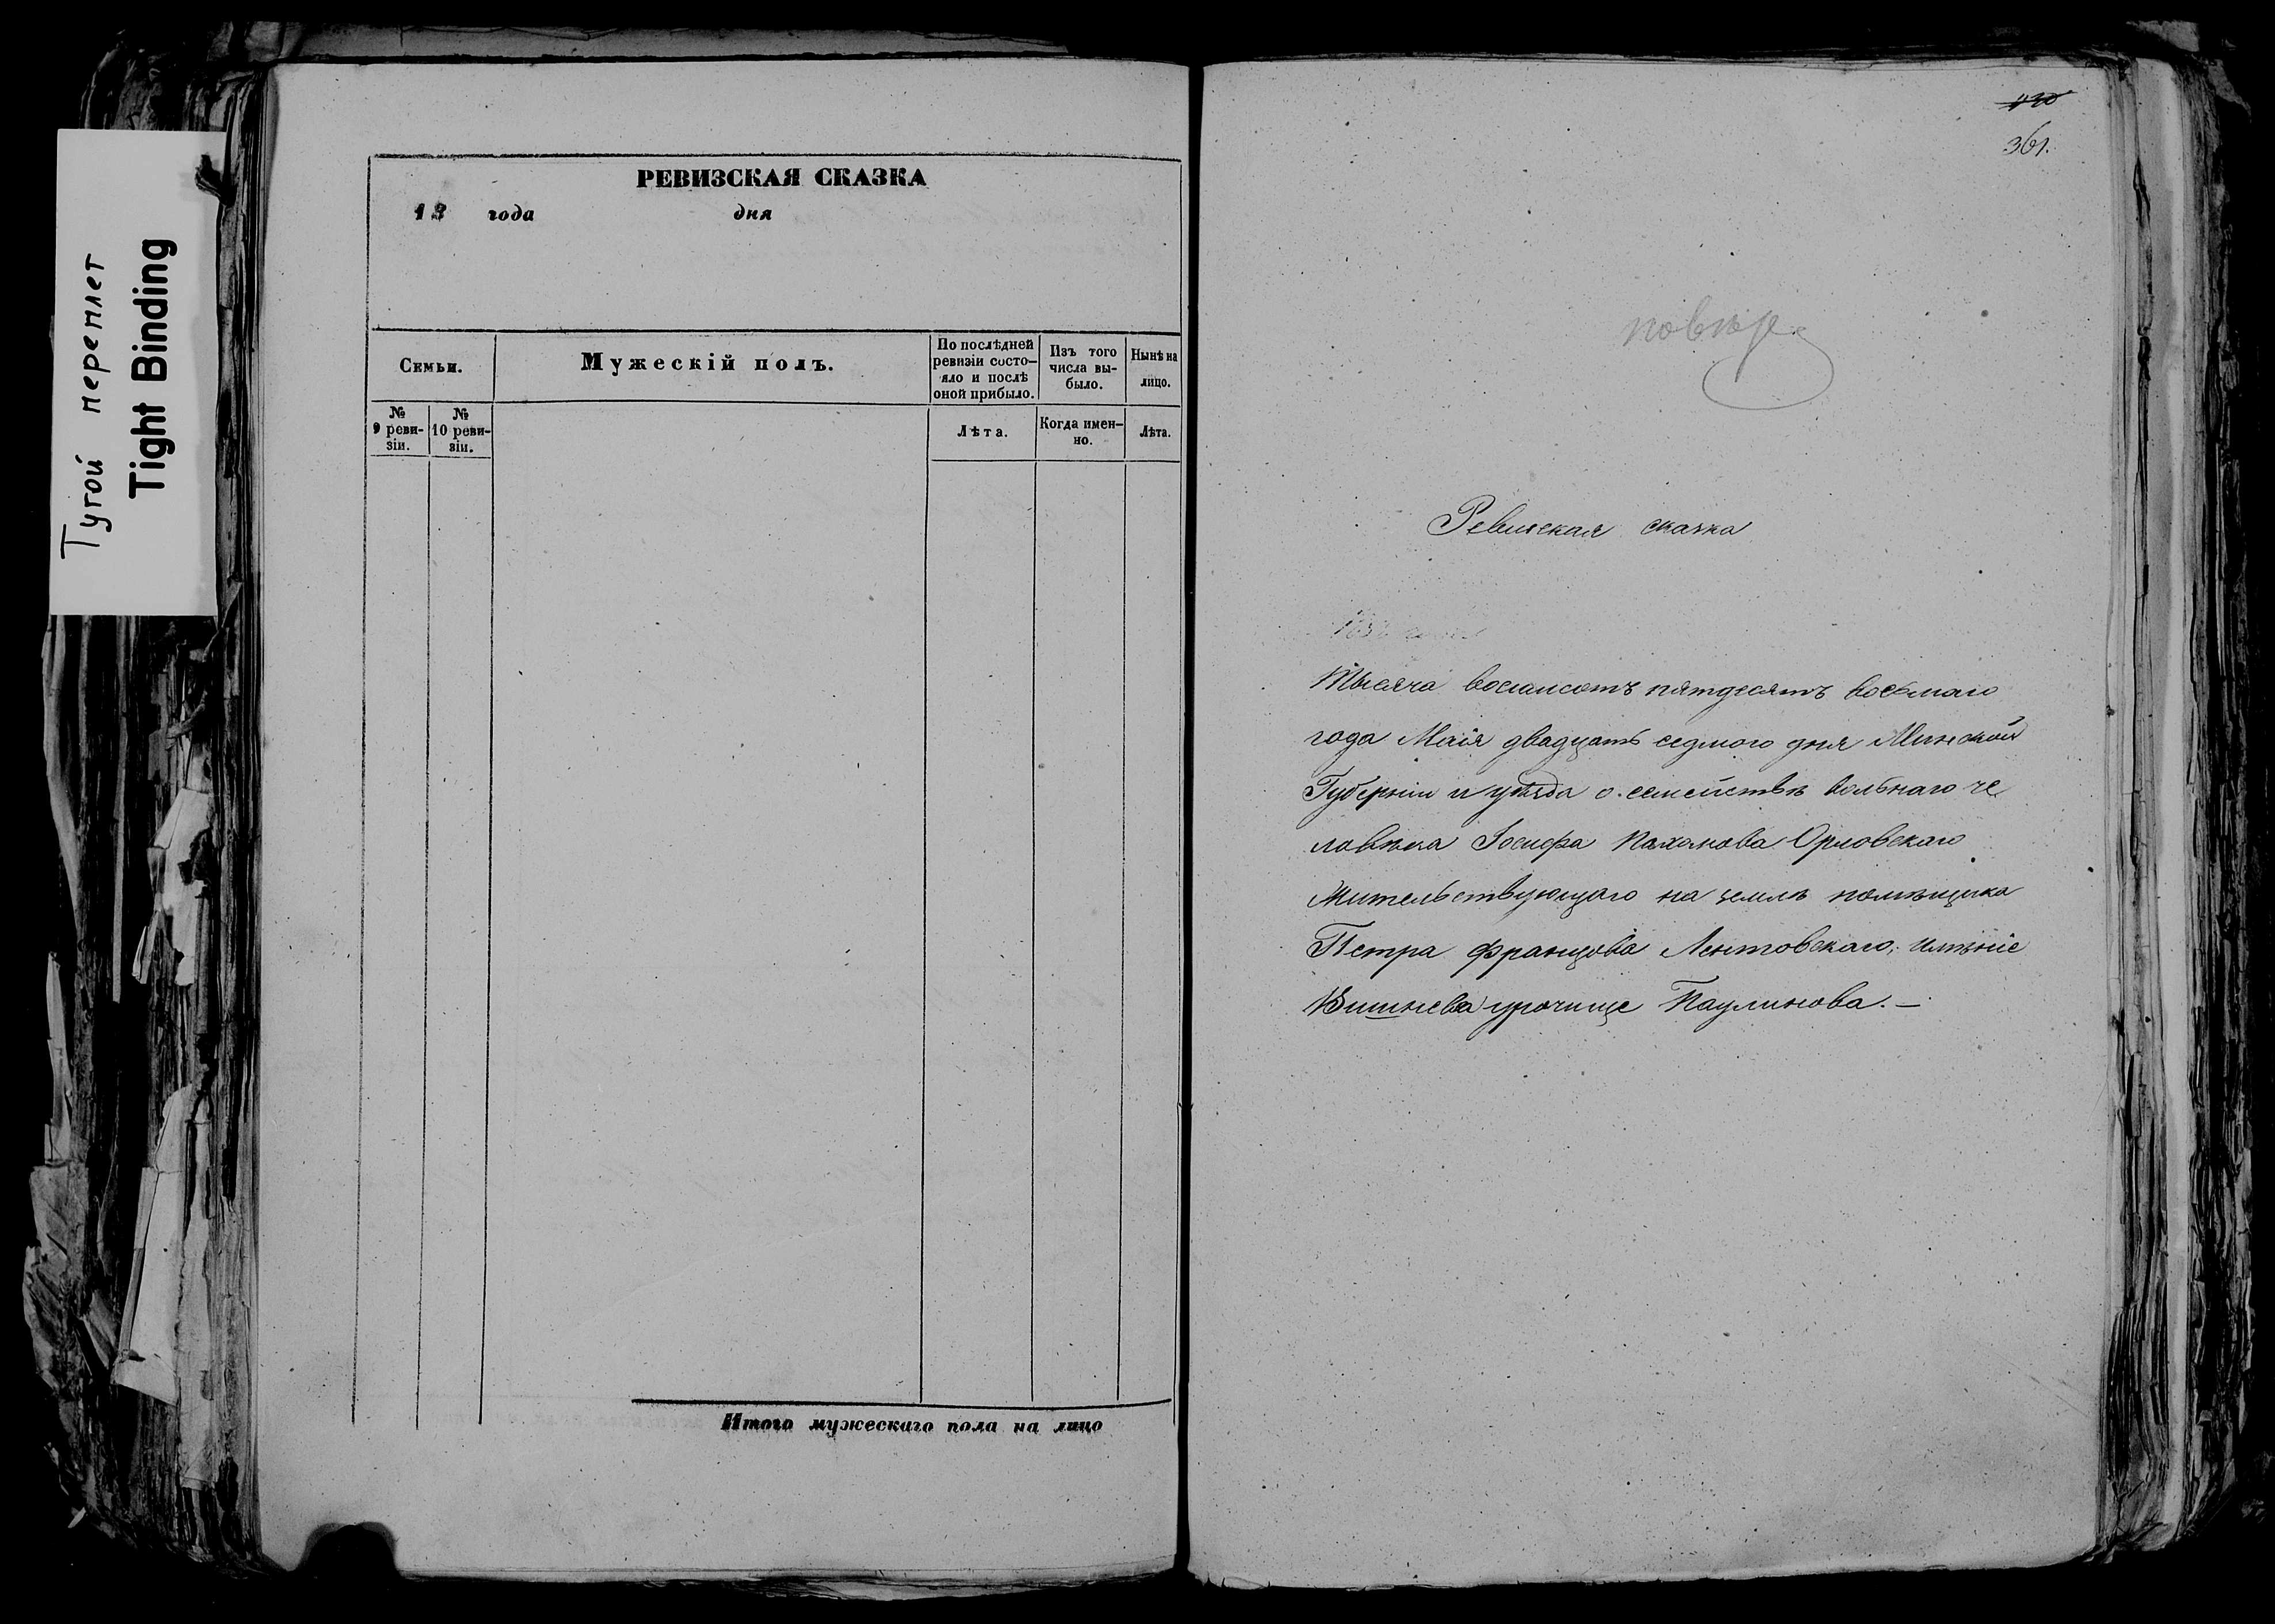 Тугой переплет
Tight Binding
РЕВИЗСКАЯ СКАЗКА
18 года дня
Семьи.
Мужескій полъ.
По послѣдней
ревизіи состо-
яло и послѣ
оной прибыло.
Изъ того
числа вы-
было.
Нынѣ на
лицо.
№
9 реви-
зіи.
№
10 реви-
зіи.
Лѣта.
Когда имен-
но.
Лѣта.
Итого мужескаго пола на лицо
361.
Ревизская сказка
Тысяча восемсотъ пятдесятъ восьмаго
года Маія двадцать седмого дня Минской
Губерніи и уѣзда о семействѣ вольнаго че
ловѣка Іосифа Пахомова Орловскаго
Жительствующаго на землѣ помѣщика
Петра Францова Лентовскаго, имѣніе
Вишнева урочище Паулинова. —